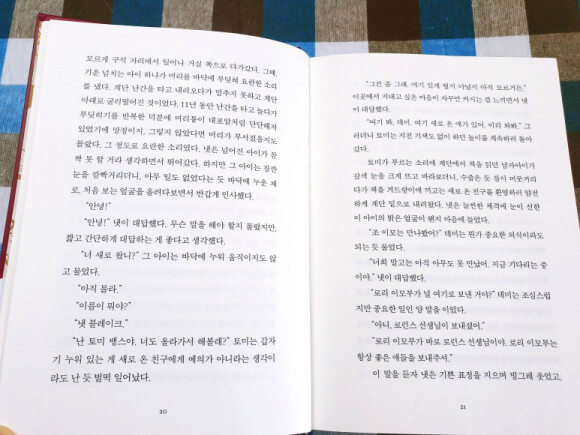 모르게 구석 자리에서 일어나 거실 쪽으로 다가갔다. 그때,
기운 넘치는 아이 하나가 머리를 바닥에 부딪혀 요란한 소리
를 냈다. 계단 난간을 타고 내려오다가 멈추지 못하고 계단
아래로 굴러떨어진 것이었다. 11년 동안 난간을 타고 놀다가
부딪히기를 반복한 덕분에 머리통이 대포알처럼 단단해져
있었기에 망정이지, 그렇지 않았다면 머리가 부서졌을지도
몰랐다. 그 정도로 요란한 소리였다. 냇은 넘어진 아이가 꼼
짝 못 할 거라 생각하면서 뛰어갔다. 하지만 그 아이는 잠깐
눈을 깜박거리더니, 아무 일도 없었다는 듯 바닥에 누운 채
로, 처음 보는 얼굴을 올려다보면서 반갑게 인사했다.
“안녕!”
“안녕!” 냇이 대답했다. 무슨 말을 해야 할지 몰랐지만,
짧고 간단하게 대답하는 게 좋다고 생각했다.
“너 새로 왔니?” 그 아이는 바닥에 누워 움직이지도 않
고 물었다.
“아직 몰라.”
“이름이 뭐야?”
“냇 블레이크.”
“난 토미 뱅스야. 너도 올라가서 해볼래?” 토미는 갑자
기 누워 있는 게 새로 온 친구에게 예의가 아니라는 생각이
라도 난 듯 벌떡 일어났다.
20
“그건 좀 그래. 여기 있게 될지 아닐지 아직 모르거든.”
이곳에서 지내고 싶은 마음이 자꾸만 커지는 걸 느끼면서 냇
이 대답했다.
“여기 봐, 데미. 여기 새로 온 애가 있어. 이리 와봐.” 그
러더니 토미는 지친 기색도 없이 하던 놀이를 계속하러 돌아
갔다.
토미가 부르는 소리에 계단에서 책을 읽던 남자아이가
갈색 눈을 크게 뜨고 바라보더니, 수줍은 듯 잠시 머뭇거리
다가 책을 겨드랑이에 끼고는 새로 온 친구를 환영하러 얌전
하게 계단 밑으로 내려왔다. 냇은 늘씬한 체격에 눈이 선한
이 아이의 밝은 얼굴이 왠지 마음에 들었다.
“조 이모는 만나봤어?” 데미는 뭔가 중요한 의식이라도
되는 듯 물었다.
“너희 말고는 아직 아무도 못 만났어. 지금 기다리는 중
이야.” 냇이 대답했다.
“로리 이모부가 널 여기로 보낸 거야?” 데미는 조심스럽
지만 중요한 일인 양 말을 이었다.
“아니, 로런스 선생님이 보내셨어.”
“로리 이모부가 바로 로런스 선생님이야. 로리 이모부는
항상 좋은 애들을 보내주셔.”
이 말을 듣자 냇은 기쁜 표정을 지으며 빙그레 웃었고,
21